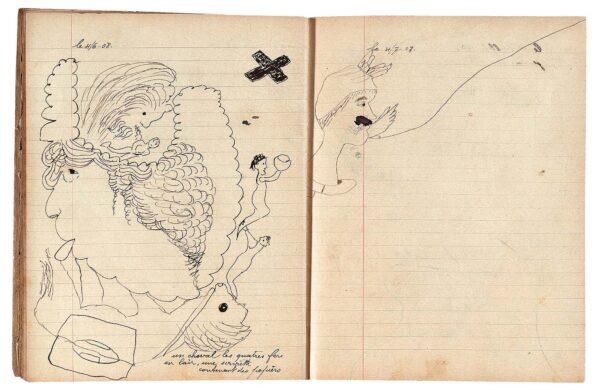 le
le
un cheval les quatres fers
en l'air, une serviette
contenant des papiers